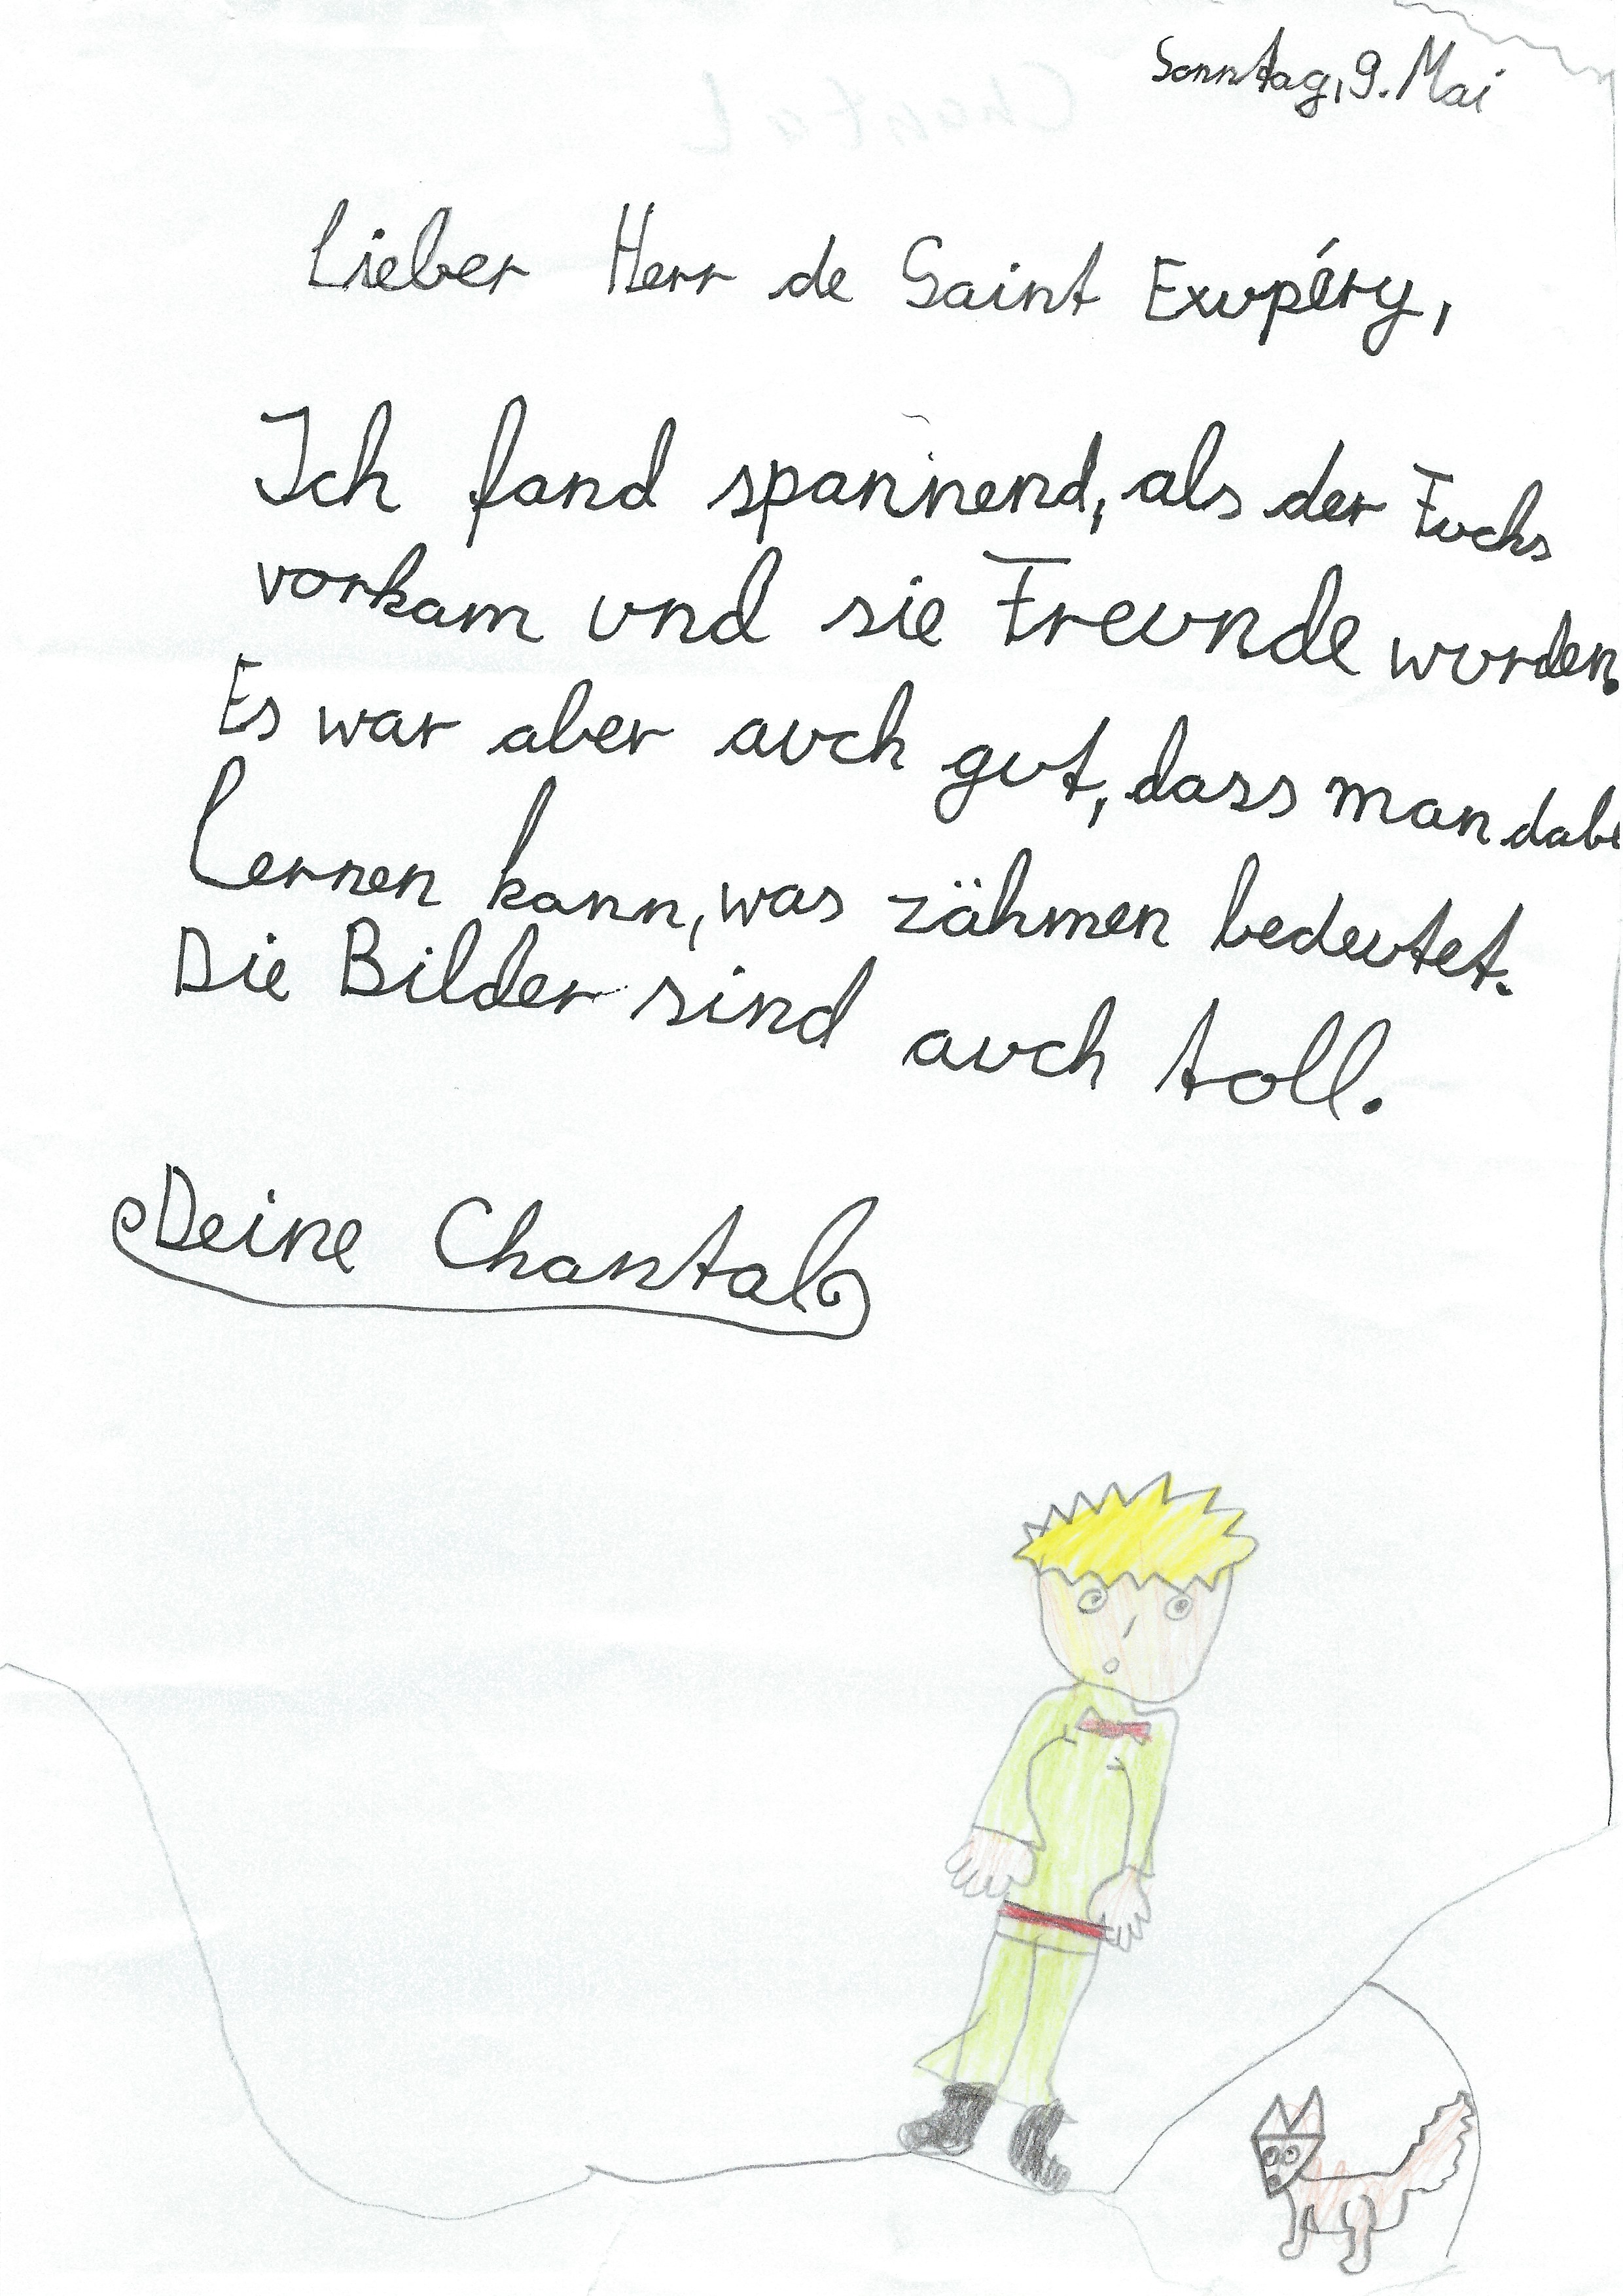 Sonntag, 9. Mai
Lieber Herr de Saint Exupéry,
Ich fand spannend, als der Fuchs
vorkam und sie Freunde wurden.
Es war aber auch gut, dass man dabei
Lernen kann, was zähmen bedeutet.
Die Bilder sind auch toll.
Deine Chantal